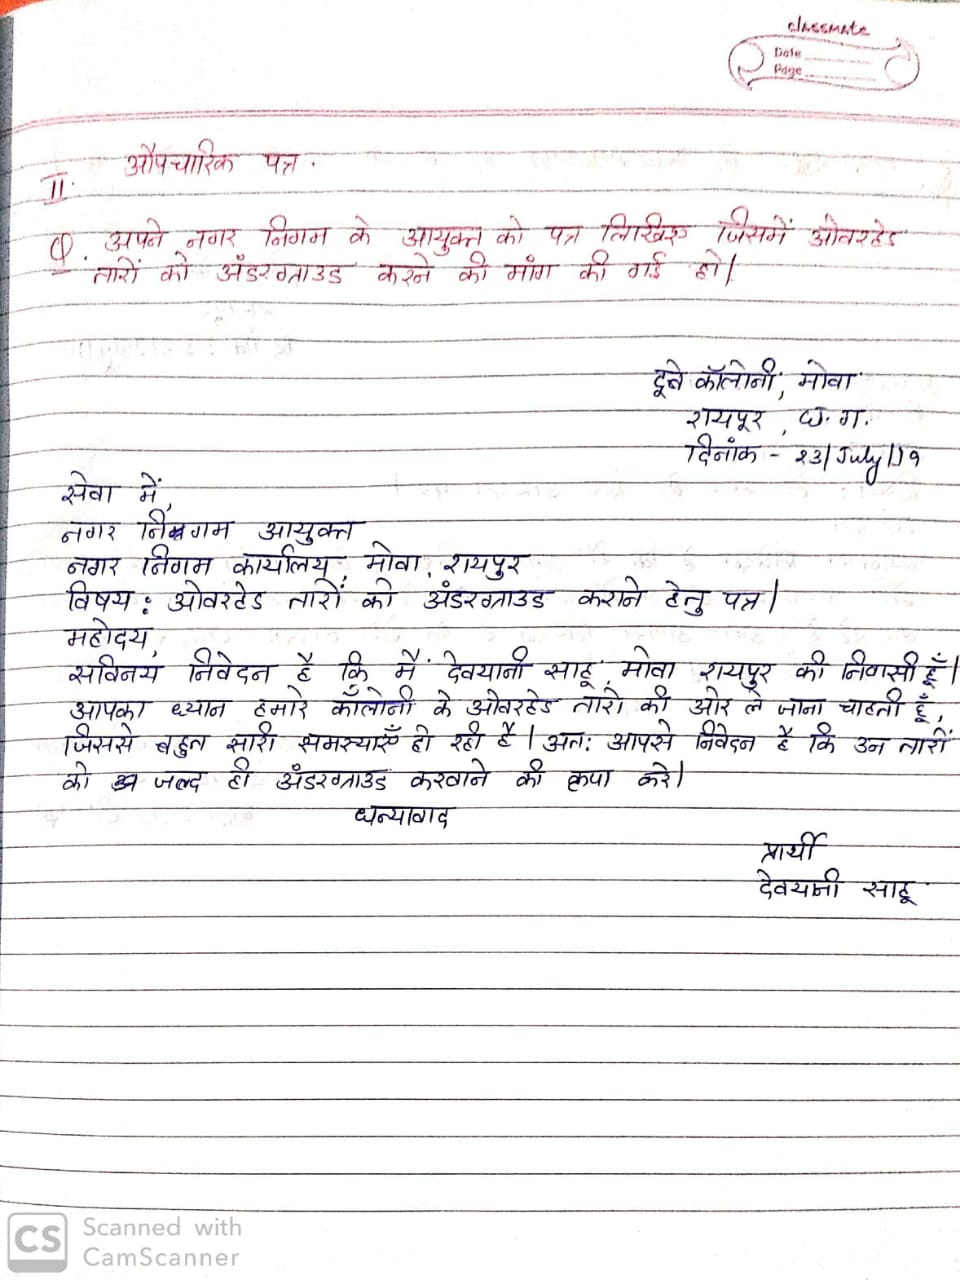 classmate
Date
Page
औपचारिक पत्र.
II.
Q. अपने नगर निगम के आयुक्त को पत्र लिखिए जिसमें ओवरहेड
तारों को अंडरग्राउड करने की मांग की गई हो।
दूबे कॉलोनी, मोवा
रायपूर, छ.ग.
दिनांक - 23/July/19
सेवा में,
नगर निगम आयुक्त
नगर निगम कार्यालय, मोवा, रायपुर
विषय: ओवरहेड तारों को अंडरग्राउड कराने हेतु पत्र।
महोदय,
सविनय निवेदन है कि मैं देवयानी साहू, मोवा रायपुर की निवासी हूँ।
आपका ध्यान हमारे कॉलोनी के ओवरहेड तारो की ओर ले जाना चाहती हूँ,
जिससे बहुत सारी समस्याएँ हो रही है। अतः आपसे निवेदन है कि उन तारों
को जल्द ही अंडरग्राउड करवाने की कृपा करे।
धन्यावाद
प्रार्थी
देवयानी साहू
CS Scanned with
CamScanner